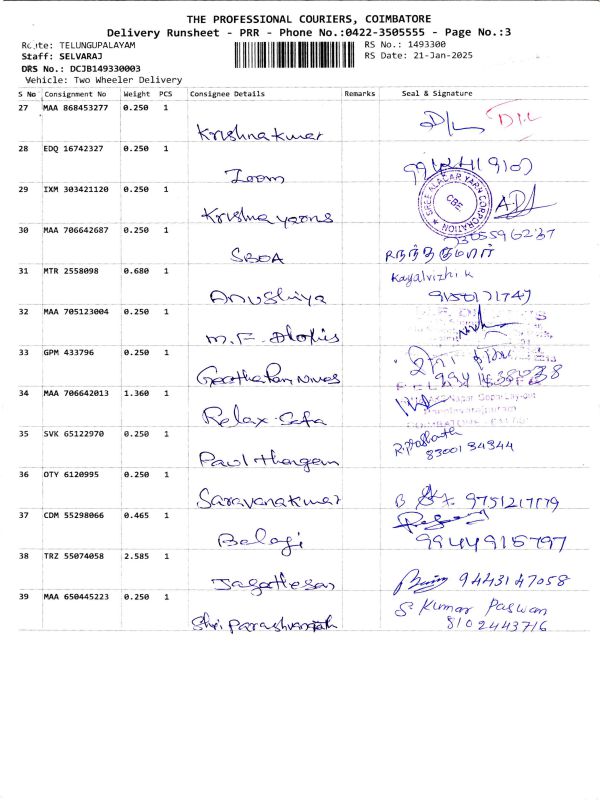 THE PROFESSIONAL COURIERS, COIMBATORE
Delivery Runsheet - PRR - Phone No.:0422-3505555 - Page No.:3
Route: TELUNGUPALAYAM RS No.: 1493300
Staff: SELVARAJ RS Date: 21-Jan-2025
DRS No.: DCJB149330003
Vehicle: Two Wheeler Delivery
S No Consignment No Weight PCS Consignee Details Remarks Seal & Signature
27 MAA 868453277 0.250 1
Krishnakumar D/L D/L
28 EDQ 16742327 0.250 1
Zoom
29 IXM 303421120 0.250 1
SREE ALAGAR YARN CORPORATION CBE
Krishna yarns
30 MAA 706642687 0.250 1
SBOA
31 MTR 2558098 0.680 1 Kayalvizhi K
Anushiya 9150171747
32 MAA 705123004 0.250 1
M.F.
33 GPM 433796 0.250 1
34 MAA 706642013 1.360 1
Relax Sofa
35 SVK 65122970 0.250 1
Paul thangam 8300134344
36 OTY 6120995 0.250 1
Saravanakumar
37 CDM 55298066 0.465 1
Balaji 9944915797
38 TRZ 55074058 2.585 1
Jagathesan 9443147058
39 MAA 650445223 0.250 1 S. Kumar Paswan
Shri Parashvanath 8102443716